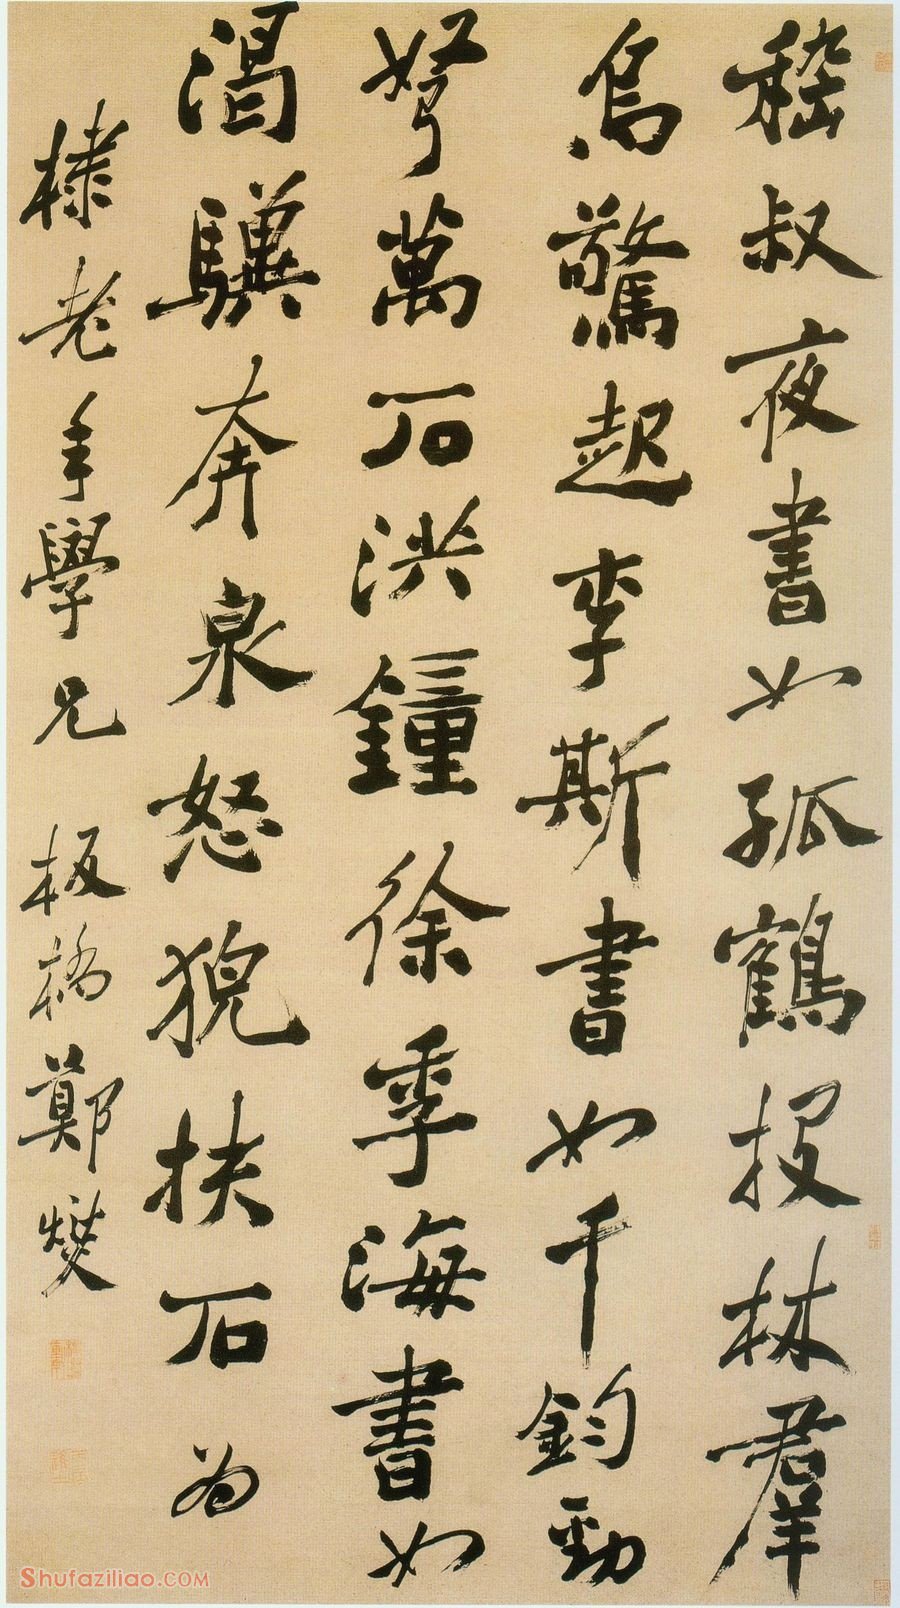 嵇叔夜書如孤鶴投林群
烏驚起李斯書如千鈞勁
弩萬石洪鐘徐季海書如
渴驥奔泉怒猊扶石为
棣老年學兄 板橋鄭燮
Shufaziliao.COM